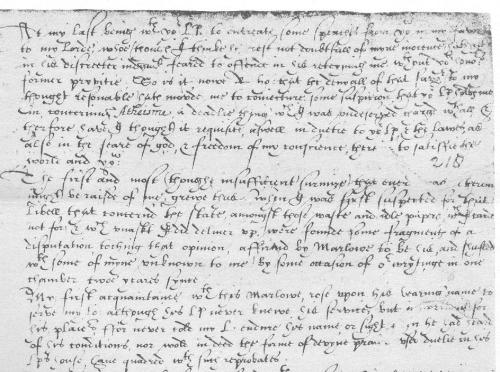 At my last being wth yor Lp. to entreate some speaches from yow in my favor
to my Lorde, whoe (though I thinke he rest not doubtfull of myne inocence) hath yet
in his discreeter iudgmt feared to offende in his reteyning me, wthout yor honors
former pryvitie; So is it nowe R. ho: that the denyall of that favor (to my
thought resonable) hath movde me to coniecture some suspicion, that yor Lp holds me
in, concerning Atheisme, a deadlie thing wch I was vndeserved chargd wthall, &
therfore have I thought it requisite, aswell in duetie to yor Lp, & the lawes, as
also in the feare of god, & freedom of my conscience, therein to satisfie the
world and yow:
218
The first and most (thoughe insufficient) surmize that euer as therein
might be raisde of me, grewe thus. When I was first suspected for that
libell that concernd the state, amongst those waste and idle papers (wch I carde
not for) & wch vnaskt I did deliuer vp, were founde some fragmentes of a
disputation toching that opinion, affirmd by Marlowe to be his, and shufled
wth some of myne (vnknown to me) by some occasion of or wrytinge in one
chamber twoe yeares synce.
My first acquaintance wth this Marlowe, rose vpon his bearing name to
serve my Lo: although his Lp never knewe his service, but in writing for
his plaiers, ffor never cold my L. endure his name or sight, when he had heard
of his conditions, nor wold in deed the forme of devyne praiers vsed duelie in his
Lps house, haue quadred wth such reprobates.